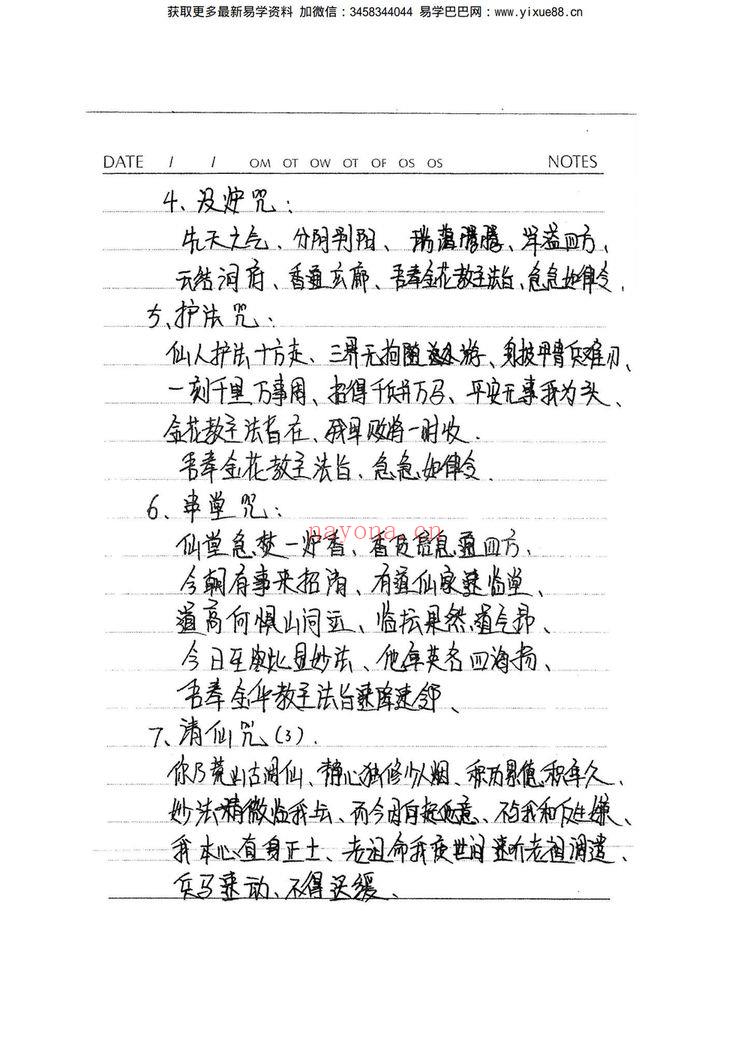 获取更多最新易学资料 加微信：3458344044 易学巴巴网：www.yixue88.cn
DATE / / OM OT OW OT OF OS OS NOTES
4、没炉咒：
先天之气、分阴判阳、瑞蔼腾腾、洋益四方、
云结洞府、香通玄廊、吾奉金花教主法旨、急急如律令.
5、护法咒：
仙人护法十方走、三界无拘随 游、身披甲胄兵难刃、
一刻千里万事周、招得千兵万马、平安无事我为头、
金花教主法旨在、 早 将一时收.
吾奉金花教主法旨、急急如律令、
6、串堂咒：
仙堂急焚一炉香、香及信息通四方、
今朝有事来招请、有道仙家速临堂、
道高何惧山间远、临坛果然道气昂、
今日至此显妙法、他年英名四海扬、
吾奉金华教主法旨速降速邻、
nayona.cn
7、清仙咒(3).
你乃荒山古洞仙、静心独修少人烟、积功累德积年久、
妙法精微临我坛、而今 、不与我和反生嫌、
我本心直身正士、老祖命我度世间速听老祖调遣、
兵马速动、不得迟缓、